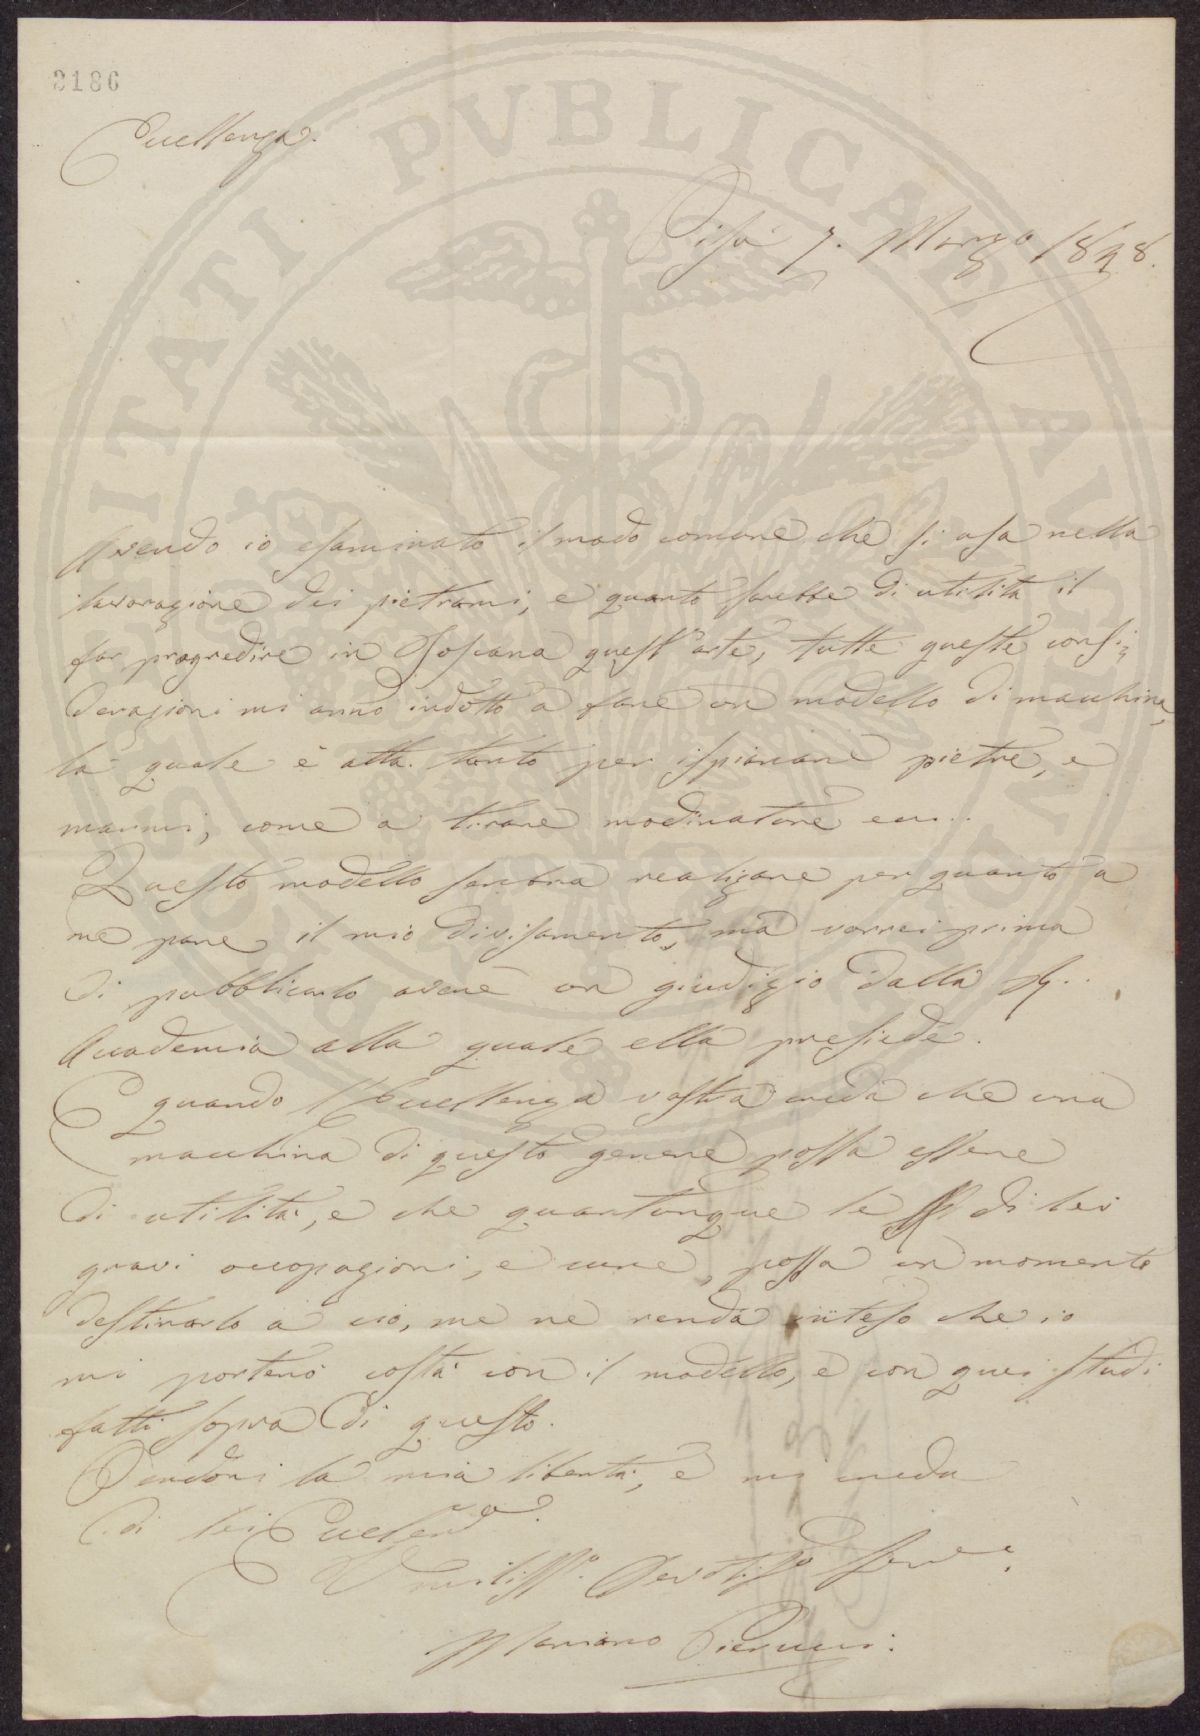 3186
Eccellenza.
Pisa 7. Marzo 1848.
Avendo io esaminato il modo comune che si usa nella
lavorazione dei pietrami, e quanto sarebbe di utilità il
far progredire in Toscana quest'arte, tutte queste consi=
derazioni mi anno indotto a fare un modello di macchina,
la quale è atta tanto per ispianare pietre, e
marmi, come a tirare modinature ecc..
Questo modello sembra realizare per quanto a
me pare il mio divisamento, ma vorrei prima
di pubblicarlo avere un giudizio dalla
Accademia alla quale ella presiede.
E quando l'Eccellenza vostra creda che una
macchina di questo genere possa essere
di utilità, e che quantunque le di lei
gravi occupazioni, e cure, possa un momento
destinarlo a ciò, me ne renda inteso che io
mi porterò costà con il modello, e con quei studi
fatti sopra di questo.
Perdoni la mia libertà, e mi creda
di lei Eccellenza
Umiliss.o Devotiss.o Serv.e
Mariano Pierucci.
PVBLICAE